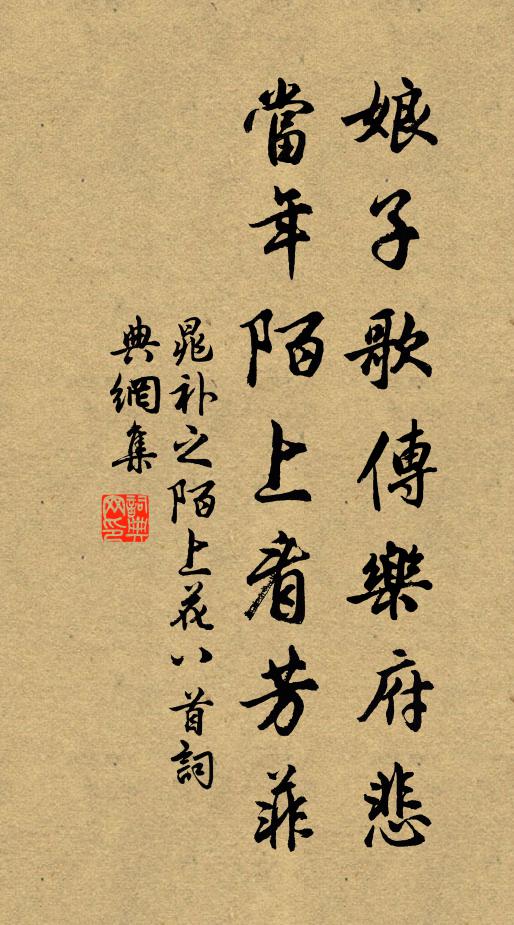 娘子歌傳樂府悲
當年陌上看芳菲
晁补之陌上花八首詞
典網集
詞典網印